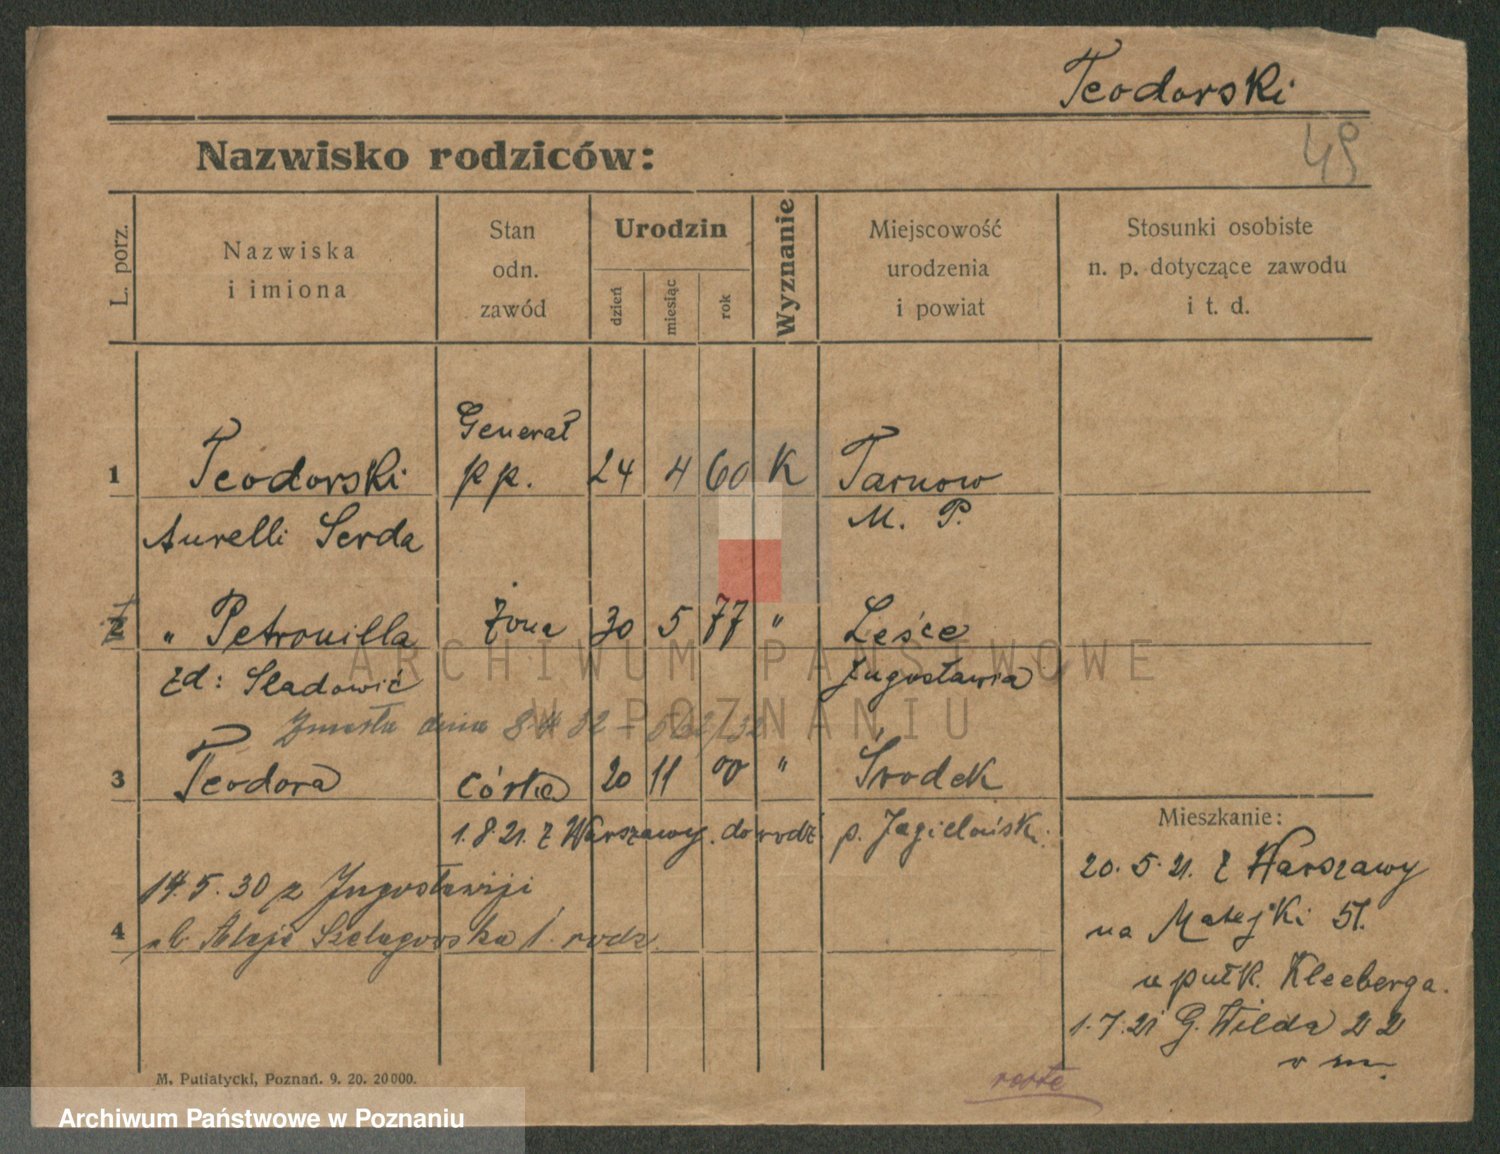 Teodorski
Nazwisko rodziców:
49
L. porz.
Nazwiska
i imiona
Stan
odn.
zawód
Urodzin
dzień
miesiąc
rok
Wyznanie
Miejscowość
urodzenia
i powiat
Stosunki osobiste
n. p. dotyczące zawodu
i t. d.
Generał
1 Teodorski p p. 24 4 60 K Tarnow
Aurelli Serda M. P.
2 " Petronilla żona 30 5 77 " Leśce
zd: Sladowić Jugosławia
Zmarła dnia 8 32
3 Teodora córka 20 11 00 " Srodek
1.8.21. z Warszawy. do rodz p. Jagielońsk.
14.5.30 z Jugosławiji
4 Aleje Szelągowska 1. rodz.
Mieszkanie:
20.5.21. z Warszawy
na Matejki 51.
u pułk. Kleeberga.
1.7.21 G. Wilda 22
M. Putiatycki, Poznań. 9. 20. 20000.
ARCHIWUM PAŃSTWOWE
W POZNANIU
Archiwum Państwowe w Poznaniu